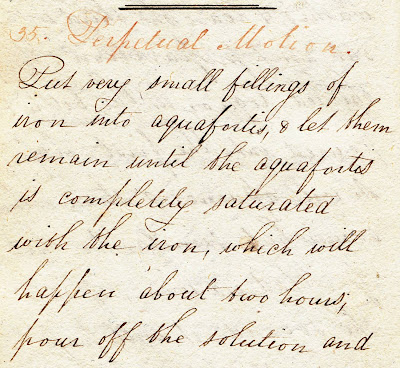 35. Perpetual Motion.
Put very small fillings of
iron into aquafortis, & let them
remain until the aquafortis
is completely saturated
with the iron, which will
happen about two hours;
pour off the solution and